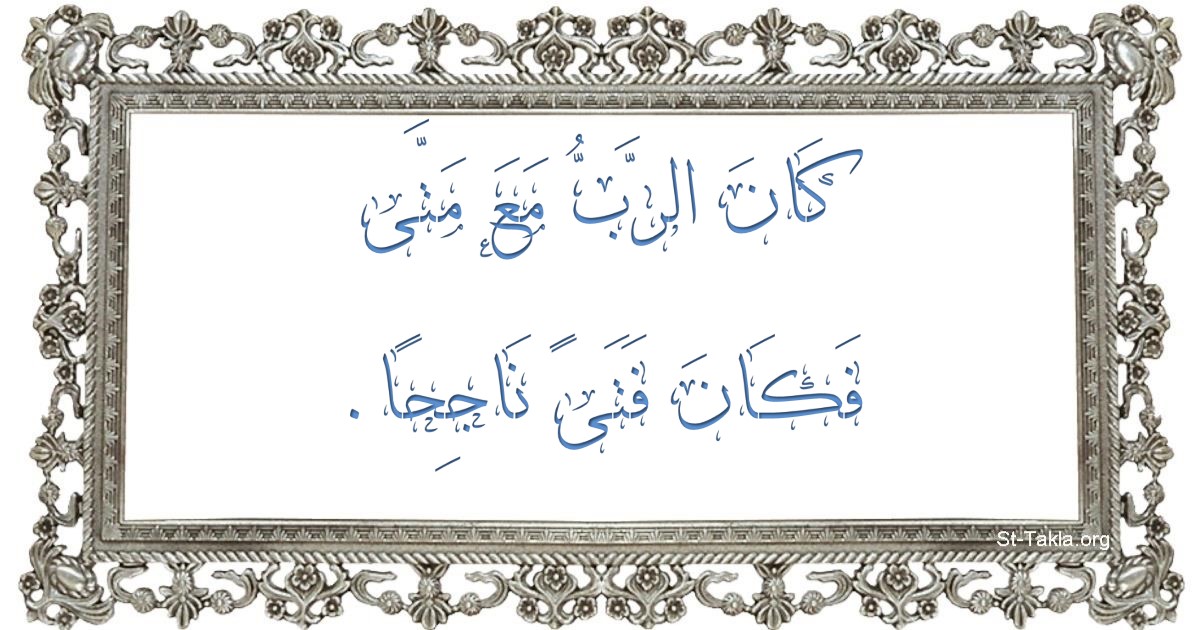 كَانَ الرَّبُّ مَعَ مَتَّى
فَكَانَ فَتَىً نَاجِحًا .
St-Takla.org